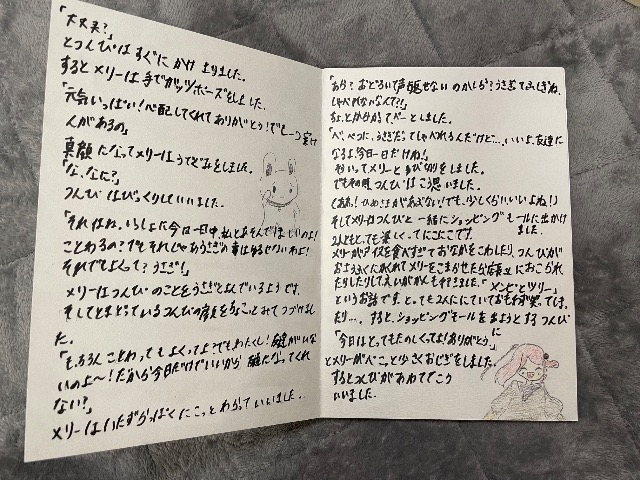 「大丈夫?」
とつんぴはすぐにかけよりました。
するとメリーは手でガッツポーズをしました。
「元気いっぱい!心配してくれてありがとう!でも一つ実け
んがあるの」
真顔になってメリーはうでぐみをしました。
「な、なに?」
つんぴはびっくりしていいました。
「それはね、いっしょに今日一日中、私とあそんでほしいのよ!
ことわるの?でもそれじゃあうさぎの事はゆるせないわよ!
それでもよくって?うさぎ!」
メリーはつんぴのことをうさぎとよんでいるようです。
そしてとまどっているつんぴの顔をちょこっとみてつづけまし
た。
「もちろんことわってもよくってよ?でもわたくし!友達がいな
いのよ〜!だから今日だけでいいから友達になってくれ
ない?」
メリーはいたずらっぽくにこっとわらっていいました。
「あら?おどろいて声も出せないのかしら?うさぎってふしぎね、
しゃべれないなんて?!」
ちょっとからかってべーとしました。
「べ、べつに、うさぎだってしゃべれるんだけど…、いいよ、友達に
なるよ、今日一日だけね!」
そういってメリーとゆび切りをしました。
でもその時つんぴはこう思いました。
(ああ!ひめさまがあぶない!でも、少しくらいいいよね!)
そしてメリーはつんぴと一緒にショッピングモールに出かけ
ました。
2人ともとても楽しくってにこにこです。
メリーがアイスを食べすぎておなかをこわしたり、つんぴが
おようふくにかくれてメリーをこまらせたら店員さんにおこられ
たりしたりしてえいがかんも行きました。「メンピとツリー」
というお話です。とっても2人ににていておもわず笑ってしま
ったり…。すると、ショッピングモールを出ようとするつんぴ
に
「今日はとってもたのしくってよ!ありがとう」
とメリーがぺこっと少しおじぎをしました。
するとつんぴがあわててこう
いいました。